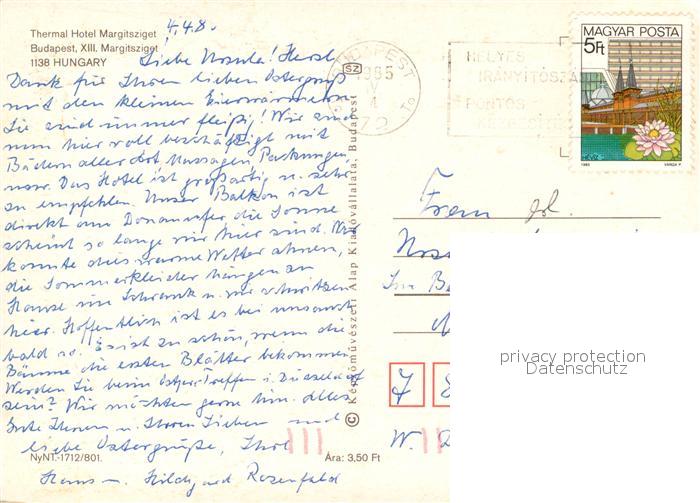 4.4.8.
Thermal Hotel Margitsziget
Budapest, XIII. Margitsziget
1138 HUNGARY
Liebe Ursula! Herzl.
Dank für Ihren lieben Ostergruß
mit den kleinen Eierwärmern
Sie sind immer fleißig! Wir sind
nun hier voll beschäftigt mit
Bädern aller Art Massagen, Packungen
usw. Das Hotel ist großartig u. sehr
zu empfehlen. Unser Balkon ist
direkt am Donauufer die Sonne
scheint so lange wir hier sind. Wer
konnte dies warme Wetter ahnen,
die Sommerkleider hängen zu
Hause im Schrank u. wir schwitzen
hier. Hoffentlich ist es bei uns auch
bald so. Es ist zu schön, wenn die
Bäume die ersten Blätter bekommen
Werden Sie beim Treffen i. Düsseldorf
sein? Wir möchten gerne hin. Alles
Gute Ihnen u. Ihren Lieben und
liebe Ostergrüße, Ihre
Hans u. Hildegard Rosenfeld
NyNT.-1712/801.
Ára: 3,50 Ft
© Képzőművészeti Alap Kiadóvállalata, Budapest
SZ
BUDAPEST
1985
IV
4
72
HELYES
IRÁNYÍTÓSZÁM
PONTOS
KÉZBESÍTÉS
MAGYAR POSTA
5Ft
1983
VARGA P.
Frau
7 8
W.
privacy protection
Datenschutz